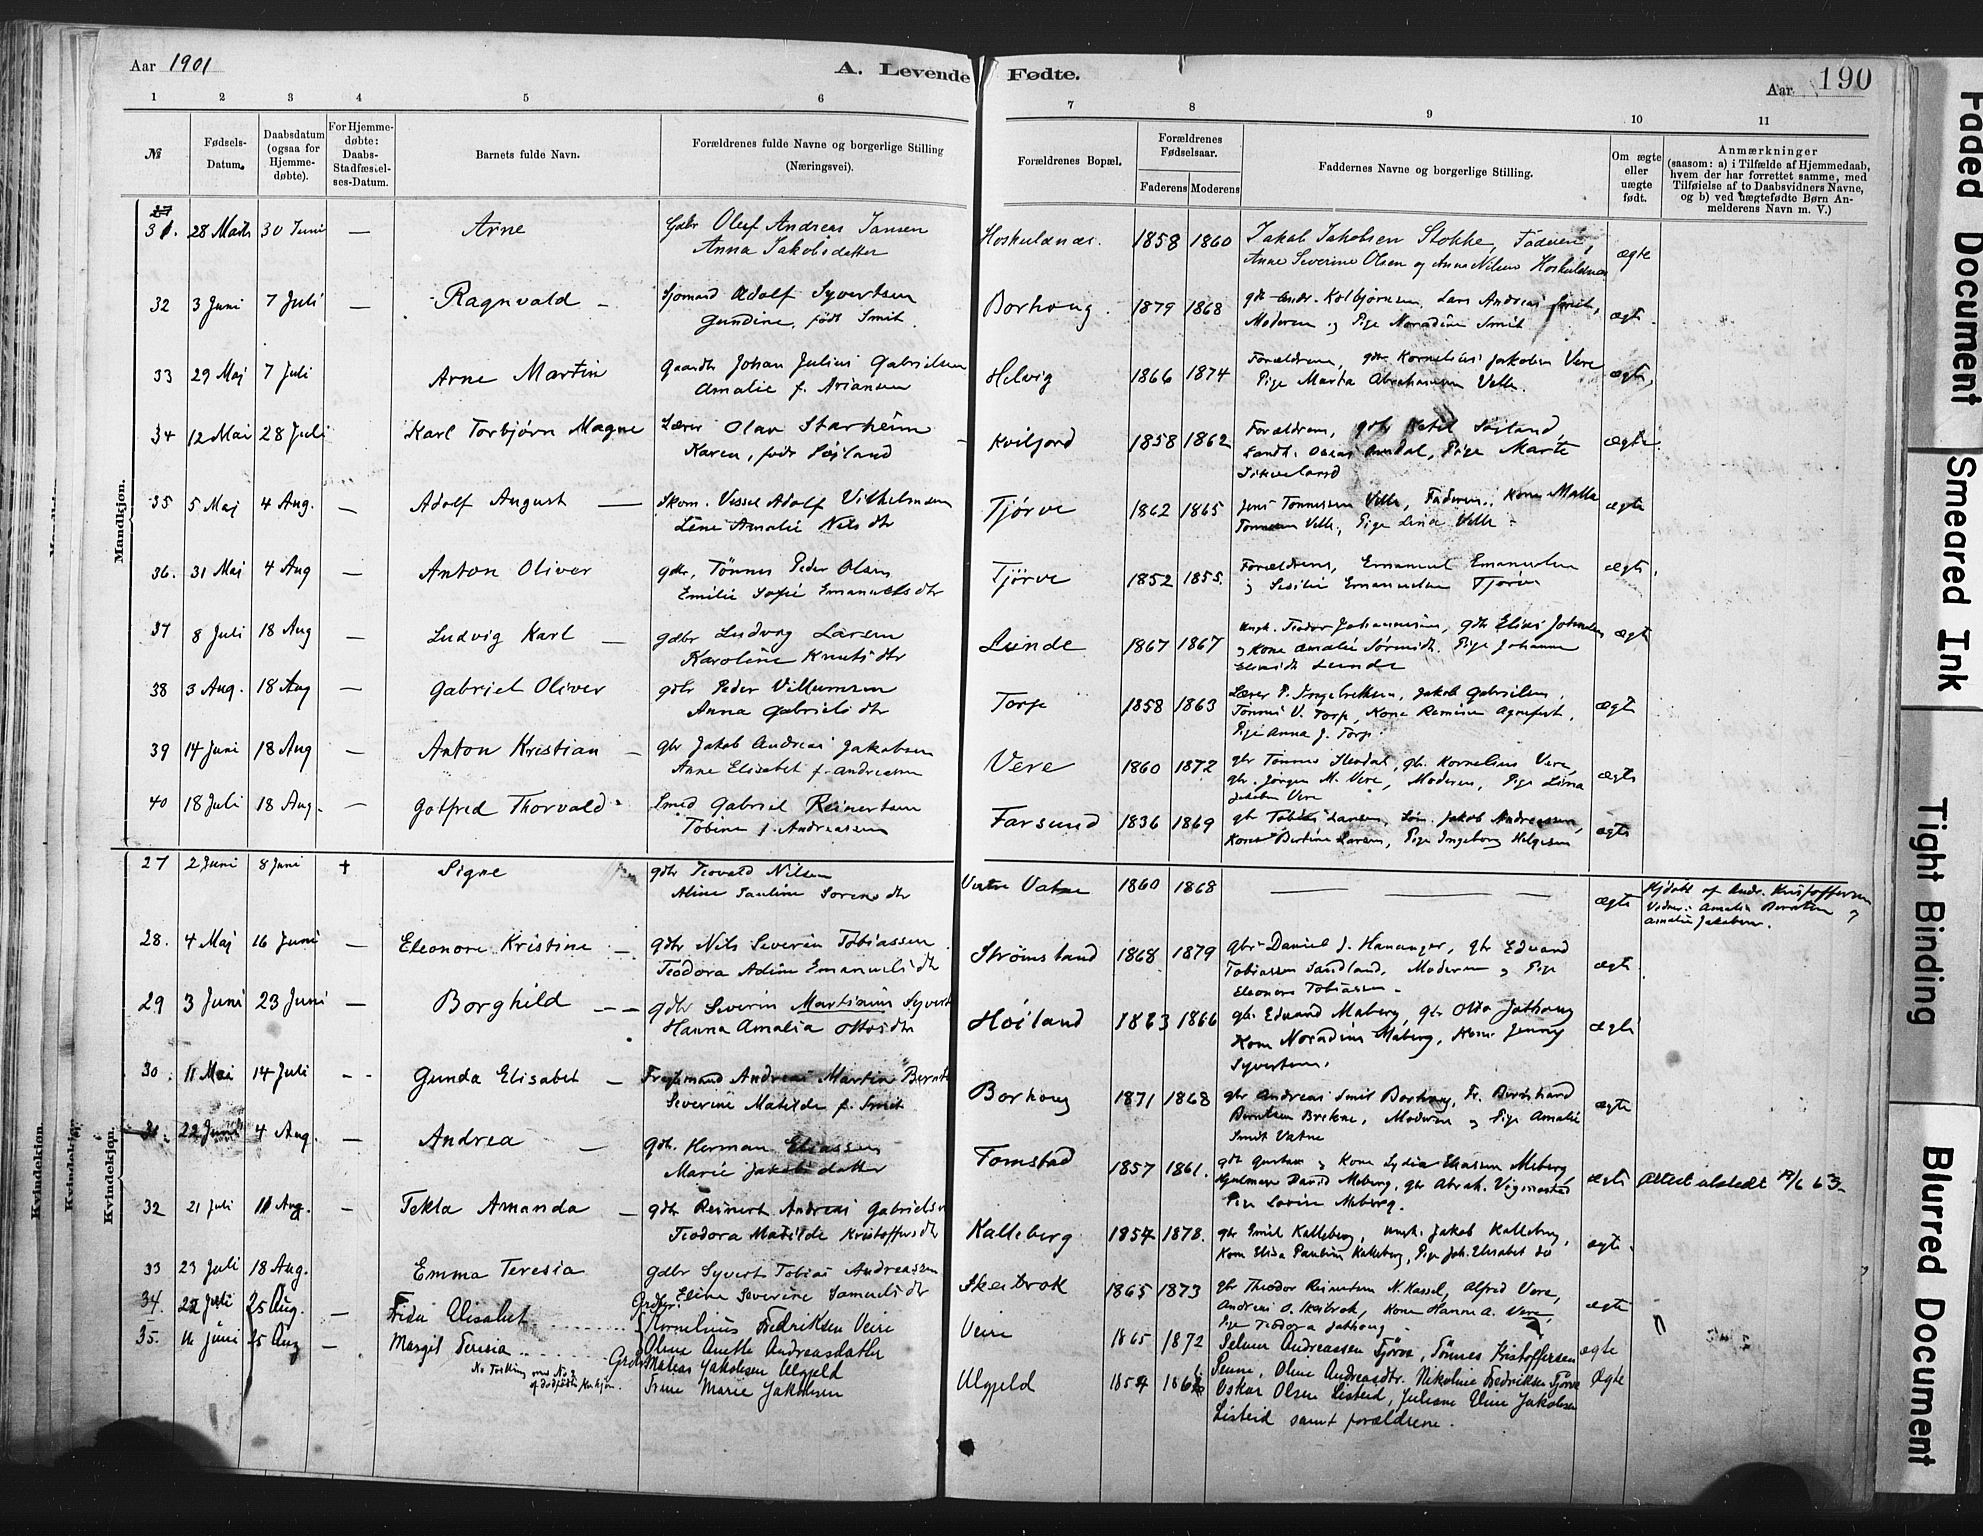 Aar 1901
A. Levende Fødte.
Aar 190
1 2 3 4 5 6 7 8 9 10 11
№
Fødsels-Datum.
Daabsdatum (ogsaa for Hjemme-døbte).
For Hjemme-døbte: Daabs-Stadfæstel-ses-Datum.
Barnets fulde Navn.
Forældrenes fulde Navne og borgerlige Stilling (Næringsvei).
Forældrenes Bopæl.
Forældrenes Fødselsaar.
Faderens Moderens
Faddernes Navne og borgerlige Stilling.
Om ægte eller uægte født.
Anmærkninger
(saasom: a) i Tilfælde af Hjemmedaab, hvem der har forrettet samme, med Tilføielse af to Daabsvidners Navne, og b) ved uægtefødte Børn An-melderens Navn m. V.)
Mandkjøn.
31. 28 Marts 30 Juni — Arne Gdbr Oluf Andreas Jansen Hoskuldnæs. 1858 1860 Jakob Jakobsen Stokke, Faderen, ægte
Anna Jakobsdatter Anne Severine Olsen og Anna Nilsen Hoskuldsnes
32 3 Juni 7 Juli — Ragnvald — Sjømand Adolf Syvertsen Borhoug. 1879 1868 Andr. Kolbjørnsen, Lars Andreas Smit, ægte.
Gundine, født Smit. Moderen og Pige Noradine Smit
33 29 Maj 7 Juli Arne Martin Gaardbr Johan Julius Gabrielsen Helvig 1866 1874 Forældrene, gdbr Kornelius Jakobsen Vere ægte,
Amalie f. Ariansen Pige Marta Abrahamsen Velle.
34 12 Mai 28 Juli Karl Torbjørn Magne Lærer Olav Starheim Kviljord 1858 1862 Forældrene, gdbr Ketil Søyland ægte.
Karen, født Søyland Pige Marte
35 5 Maj 4 Aug. — Adolf August — Skom. Vessel Adolf Vilhelmsen Tjørve 1862 1865 Jens Tønnessen Velle, Faderen, Kone Malla ægte
Line Amalie Nilsdtr Tønnessen Velle, Pige Lina Velle -
36. 31 Maj 4 Aug — Anton Oliver gdbr, Tønnes Peder Olsen Tjørve 1852 1855. Forældrene, Emanuel Emanuelsen ægte.
Emilie Sofie Emanuelsdtr og Emanuelsen Tjørve
37 8 Juli 18 Aug — Ludvig Karl — gdbr Ludvig Larsen Lunde 1867 1867 Ungk. Teodor Johannessen, gdbr Elias Johnsen ægte
Karoline Knutsdtr og Kone Amalie Pige Johanne
Lunde
38 3 Aug. 18 Aug — Gabriel Oliver gdbr Peder Villumsen Torp 1858 1863 Lærer P. Ingebretsen, Jakob Gabrielsen, ægte
Anna Gabrielsdtr Tønnes V. Torp, Kone
Pige Anna J. Torp.
39 14 Juni 18 Aug — Anton Kristian — gbr Jakob Andreas Jakobsen Vere 1860 1872 gbr Tønnes gbr. Kornelius Vere, ægte
Anne Elisabet f. Andreassen gbr. Jørgen M. Vere, Moderen, Pige Lina
Jakobsen Vere
40 18 Juli 18 Aug. — Gotfred Thorvald. Smed Gabriel Reinertsen Farsund 1836 1869 gbr Tobias Larsen, Jakob Andreassen, ægte
Tobine f. Andreassen Kone Bertine Larsen, Pige Ingeborg Helgesen
Kvindekjøn.
27 2 Juni 8 Juni † Signe gdbr Teovald Nilsen Vestre Vatne 1860 1868 — — ægte Hjdøbt af Andr. Kristoffersen
Aline Pauline Sørensdtr Vidner: Amalia Berntsen og
Amalie Jakobsen.
28. 4 Maj 16 Juni — Eleonore Kristine — gdbr Nils Severin Tobiassen Strømsland 1868 1879 gbr Daniel J. Hananger, gbr Edvard ægte
Teodora Adine Emanuelsdtr Tobiassen Sandland, Moderen og Pige
Eleonora Tobiassen -
29 3 Juni 23 Juni — Borghild — — gdbr Severin Martinius Syverts Høiland 1863 1866 gbr. Edvard Meberg, gbr Otto Jøthoug ægte
Hanna Amalia Ottosdtr Kone Noradine Meberg, Kone Jenny
Syvertsen.
30. 11 Mai 14 Juli — Gunda Elisabet — Andreas Martin Bernts Borhoug 1871 1868 gbr Andreas Smit Borhoug, Fr. Berntsen Brekne, Moderen og Pige Amalie ægte
Severine Matilde f. Smit Smit Vatne
31. 22 Juni 4 Aug. — Andrea — gdb. Herman Eliassen Tomstad 1857 1861. gdb Gustav og Kone Lydia Eliassen Meberg, ægte Attest utstedt 17/6 63.
Marie Jakobsdatter Hjalmar David Meberg, gbr Abrah. Vigmostad
Pige Lovise Meberg.
32 21 Juli 11 Aug. — Tekla Amanda — gdbr Reinert Andreas Gabrielsen Kalleberg 1854 1878. gbr Emil Kalleberg, ungk. Jakob Kalleberg, ægte.
Teodora Matilde Kristoffersdtr Kone Elisa Pauline Kalleberg, Pige Joh. Elisabet do
33 23 Juli 18 Aug. Emma Teresia gdbr Syvert Tobias Andreassen Skeibrok 1865 1873 gbr Theodor Reinertsen N. Kassel, Alfred Vere, ægte
Eline Severine Samuelsdtr Andreas O. Skeibrok, Kone Hanna A. Vere,
Pige Teodora Jøthoug -
34. 22 Juli 25 Aug. — Frida Elisabet Grdbr. Kornelius Fredriksen Veire Veire 1865 1872 Selmer Andreassen Tjørve, Tønnes Kristoffersen ægte
Oline Anette Andreasdatter Penne, Oline Andreasdtr. Nikoline Fredriksen Tjørve
35. 14 Juni 25 Aug — Margit Teresia Grdbr Matias Jakobsen Ulgjeld Ulgjeld 1854 186 Oskar Olsen Listeid, Juliane Eline Jakobsen Ægte
Trine Marie Jakobsen Listeid samt forældrene.
Kvindekjøn.
Kvindekjøn.
Faded Document
Smeared Ink
Tight Binding
Blurred Document